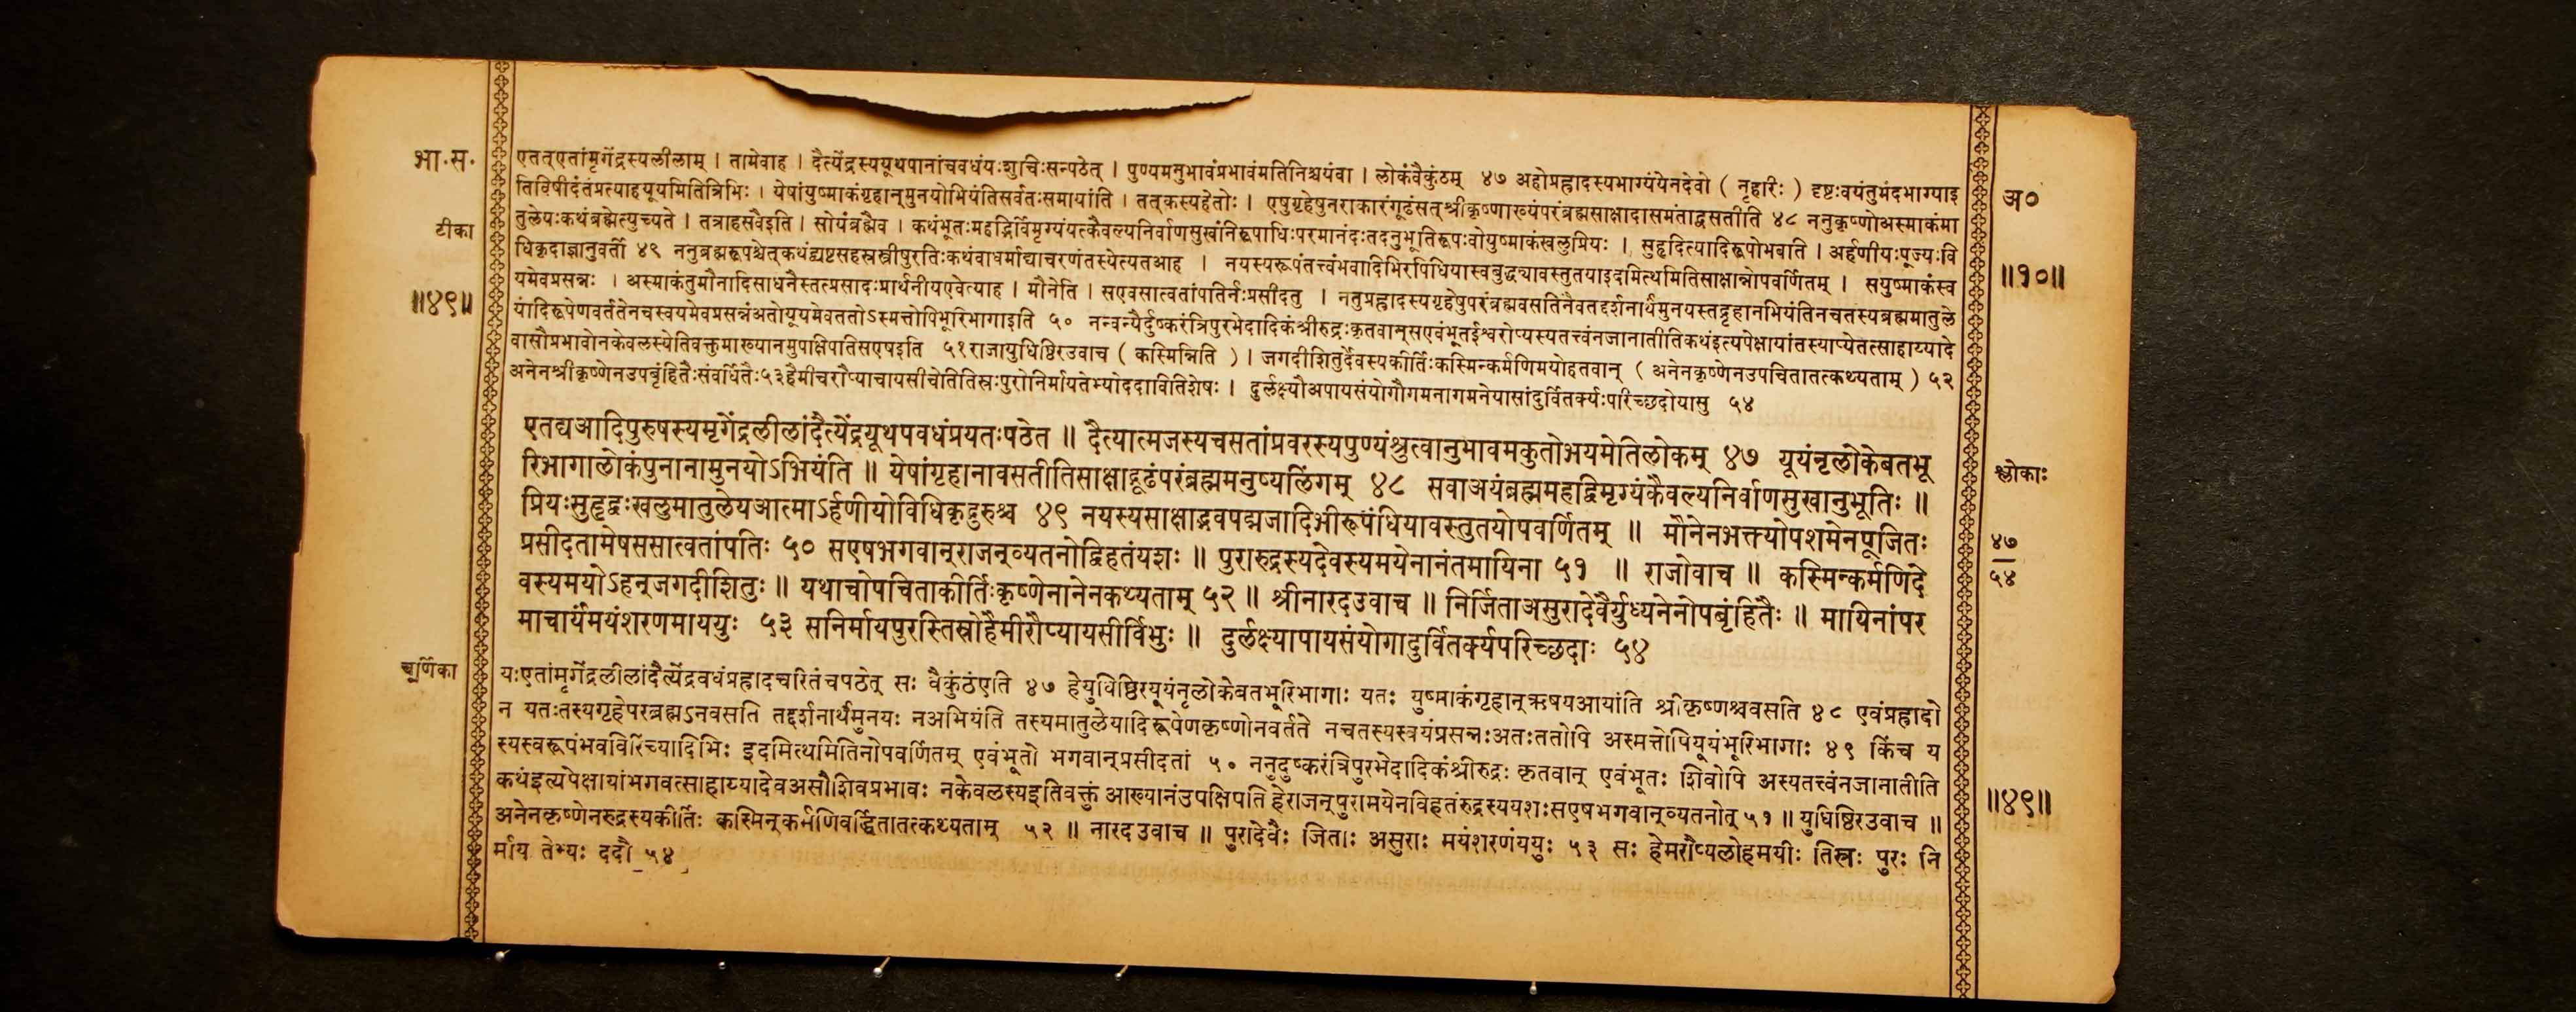 भा.स.
एतत्एतांमृगेंद्रस्यलीलाम् । तामेवाह । दैत्येंद्रस्ययूथपानांचवधंयःशुचिःसन्पठेत् । पुण्यमनुभावंप्रभावंमतिनिश्चयंवा । लोकंवैकुंठम् ४७ अहोप्रह्लादस्यभाग्यंयेनदेवो ( नृहारिः ) दृष्टःवयंतुमंदभाग्याइ
अ०
तिविषीदंतंप्रत्याहयूयमितित्रिभिः । येषांयुष्माकंगृहान्मुनयोभियंतिसर्वतःसमायांति । तत्कस्यहेतोः । एषुगृहेषुनराकारंगूढंसत्श्रीकृष्णाख्यंपरंब्रह्मसाक्षादासमंताद्वसतीति ४८ ननुकृष्णोअस्माकंमा
टीका
तुलेयःकथंब्रह्मेत्युच्यते । तत्राहसवैइति । सोयंब्रह्मैव । कथंभूतःमहद्भिर्विमृग्यंयत्कैवल्यनिर्वाणसुखंनिरूपाधिःपरमानंदःतदनुभूतिरूपःवोयुष्माकंखलुप्रियः । सुहृदित्यादिरूपोभवाति । अर्हणीयःपूज्यःवि
धिकृदाज्ञानुवर्ती ४९ ननुब्रह्मरूपश्चेत्कथंद्व्यष्टसहस्रस्त्रीषुरतिःकथंवाधर्माद्याचरणंतस्येत्यतआह । नयस्यरूपंतत्त्वंभवादिभिरपिधियास्वबुद्ध्यावस्तुतयाइदमित्थमितिसाक्षान्नोपवर्णितम् । सयुष्माकंस्व
॥१०॥
यमेवप्रसन्नः । अस्माकंतुमौनादिसाधनैस्तत्प्रसादःप्रार्थनीयएवेत्याह । मौनेति । सएवसात्वतांपतिर्नःप्रसीदतु । नतुप्रह्लादस्यगृहेषुपरंब्रह्मवसतिनैवतद्दर्शनार्थमुनयस्तद्गृहानभियंतिनचतस्यब्रह्ममातुले
॥४९॥
यादिरूपेणवर्ततेनचस्वयमेवप्रसन्नंअतोयूयमेवततोऽस्मत्तोपिभूरिभागाइति ५० नन्वन्यैर्दुष्करंत्रिपुरभेदादिकंश्रीरुद्रःकृतवान्सएवंभूतईश्वरोप्यस्यतत्त्वंनजानातीतिकथंइत्यपेक्षायांतस्याप्येतत्साहाय्यादे
वासौप्रभावोनकेवलस्येतिवक्तुमाख्यानमुपाक्षिपतिसएषइति ५१राजायुधिष्ठिरउवाच ( कस्मिन्निति ) । जगदीशितुर्देवस्यकीर्तिःकस्मिन्कर्मणिमयोहतवान् ( अनेनकृष्णेनउपचितातत्कथ्यताम् ) ५२
अनेनश्रीकृष्णेनउपबृंहितैःसंवर्धितैः५३हैमीचरौप्याचायसीचेतितिस्रःपुरोनिर्मायतेभ्योददावितिशेषः । दुर्लक्ष्यौअपायसंयोगौगमनागमनेयासांदुर्वितर्क्यःपरिच्छदोयासु ५४
एतद्यआदिपुरुषस्यमृगेंद्रलीलांदैत्येंद्रयूथपवधंप्रयतःपठेत ॥ दैत्यात्मजस्यचसतांप्रवरस्यपुण्यंश्रुत्वानुभावमकुतोभयमेतिलोकम् ४७ यूयंनृलोकेबतभू
श्लोकाः
रिभागालोकंपुनानामुनयोऽभियंति ॥ येषांगृहानावसतीतिसाक्षाद्गूढंपरंब्रह्ममनुष्यलिंगम् ४८ सवाअयंब्रह्ममहद्विमृग्यंकैवल्यनिर्वाणसुखानुभूतिः ॥
प्रियःसुहृद्वःखलुमातुलेयआत्माऽर्हणीयोविधिकृद्गुरुश्च ४९ नयस्यसाक्षाद्भवपद्मजादिभीरूपंधियावस्तुतयोपवर्णितम् ॥ मौनेनभक्त्योपशमेनपूजितः
४७
प्रसीदतामेषससात्वतांपतिः ५० सएषभगवान्राजन्व्यतनोद्विहतंयशः ॥ पुरारुद्रस्यदेवस्यमयेनानंतमायिना ५१ ॥ राजोवाच ॥ कस्मिन्कर्मणिदे
५४
वस्यमयोऽहन्जगदीशितुः ॥ यथाचोपचिताकीर्तिःकृष्णेनानेनकथ्यताम् ५२ ॥ श्रीनारदउवाच ॥ निर्जिताअसुरादेवैर्युध्यनेनोपबृंहितैः ॥ मायिनांपर
माचार्यंमयंशरणमाययुः ५३ सनिर्मायपुरस्तिस्रोहैमीरौप्यायसीर्विभुः ॥ दुर्लक्ष्यापायसंयोगादुर्वितर्क्यपरिच्छदाः ५४
चूर्णिका
यःएतांमृगेंद्रलीलांदैत्येंद्रवधंप्रह्लादचरितंचपठेत् सः वैकुंठंएति ४७ हेयुधिष्ठिरयूयंनृलोकेबतभूरिभागाः यतः युष्माकंगृहान्ऋषयआयांति श्रीकृष्णश्चवसति ४८ एवंप्रह्लादो
न यतःतस्यगृहेपरब्रह्मऽनवसति तद्दर्शनार्थंमुनयः नअभियंति तस्यमातुलेयादिरूपेणकृष्णोनवर्तते नचतस्यस्वयंप्रसन्नःअतःततोपि अस्मत्तोपियूयंभूरिभागाः ४९ किंच य
स्यस्वरूपंभवविरिंच्यादिभिः इदमित्थमितिनोपवर्णितम् एवंभूतो भगवान्प्रसीदतां ५० ननुदुष्करंत्रिपुरभेदादिकंश्रीरुद्रः कृतवान् एवंभूतः शिवोपि अस्यतत्त्वंनजानातीति
कथंइत्यपेक्षायांभगवत्साहाय्यादेवअसौशिवप्रभावः नकेवलस्यइतिवक्तुं आख्यानंउपक्षिपति हेराजन्पुरामयेनविहतंरुद्रस्ययशःसएषभगवान्व्यतनोत् ५१ ॥ युधिष्ठिरउवाच ॥
॥४९॥
अनेनकृष्णेनरुद्रस्यकीर्तिः कस्मिन्कर्मणिवर्द्धितातत्कथ्यताम् ५२ ॥ नारदउवाच ॥ पुरादेवैः जिताः असुराः मयंशरणंययुः ५३ सः हेमरौप्यलोहमयीः तिस्रः पुरः नि
र्माय तेभ्यः ददौ ५४